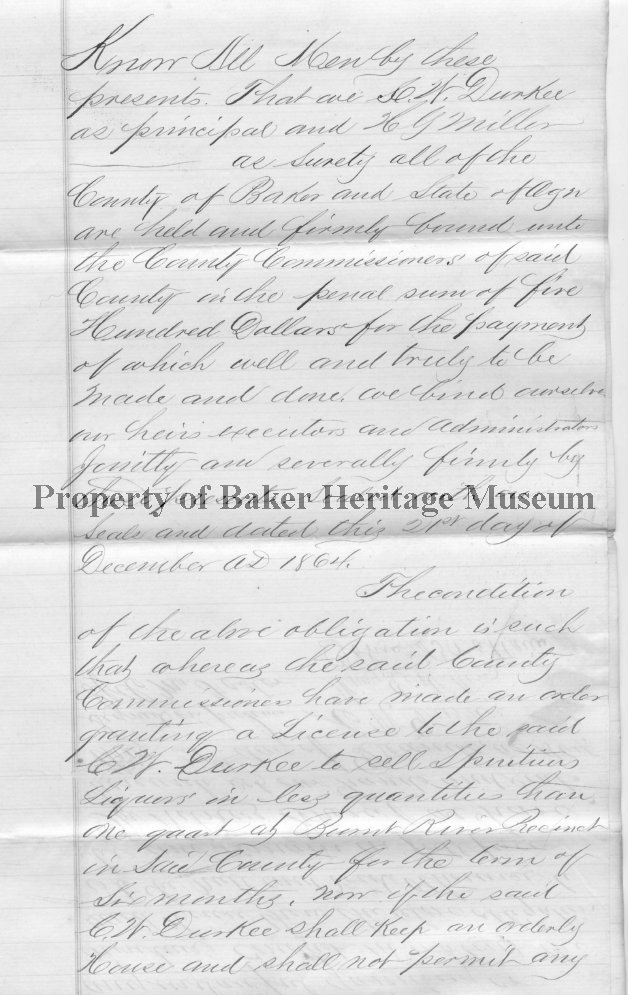 Know All Men by these
presents. That we C. W. Durkee
as principal and H G Miller
as Surety all of the
County of Baker and State of Ogn
are held and firmly bound unto
the County Commissioners of said
County in the penal sum of five
Hundred Dollars for the payment
of which well and truly to be
made and done. we bind ourselves
our heirs executors and administrators
Jointly and severally firmly by
Property of Baker Heritage Museum
these presents
Seals and dated this 21st day of
December AD 1864.
The condition
of the above obligation is such
that whereas the said County
Commissioners have made an order
granting a License to the said
C. W. Durkee to sell Spiritius
Liquors in less quantities than
one quart at Burnt River Precinct
in Said County for the term of
Six months, now if the said
C. W. Durkee shall keep an orderly
House and shall not permit any